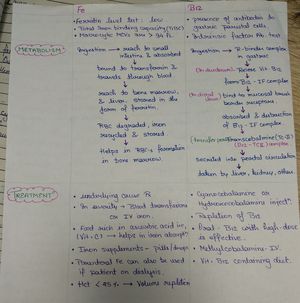 Fe
B12
• Ferritin level test : low
• Total Iron binding capacity (rise)
• Macrocytic MCV
• presence of antibodies to
gastric parietal cells
• Intrinsic factor Ab test
METABOLISM
Ingestion → reach to small
intestine & absorbed
bound to transferrin &
travels through blood
reach to bone marrow,
& liver, stored in the
form of ferritin
RBC degraded, iron
recycled & stored
Helps in RBC formation
in bone marrow.
Ingestion → R-binder complex
in gastric
(In duodenum) Vit B12
form B12 - IF complex
bind to mucosal brush
border receptors
absorbed & detraction
of B12 - IF complex
Transcobalamine
(B12 - TCII) complex
Secreted into portal circulation
taken by liver, kidney, other
TREATMENT
• underlying cause R
• In severity → Blood transfusion
or IV iron.
• Food such in ascorbic acid ie,
(Vit - C) → helps in iron absorpt.
• Iron supplements - pills/drops
• Parenteral Fe can also be used
if patient on dialysis.
• Hct < 45% → Volume repletion
• Cyanocobalamine or
hydroxocobalamine inject.
• Repletion of B12
• Oral - B12 with high dose
is effective.
• Methylcobalamine - IV.
• Vit - B12 containing diet.